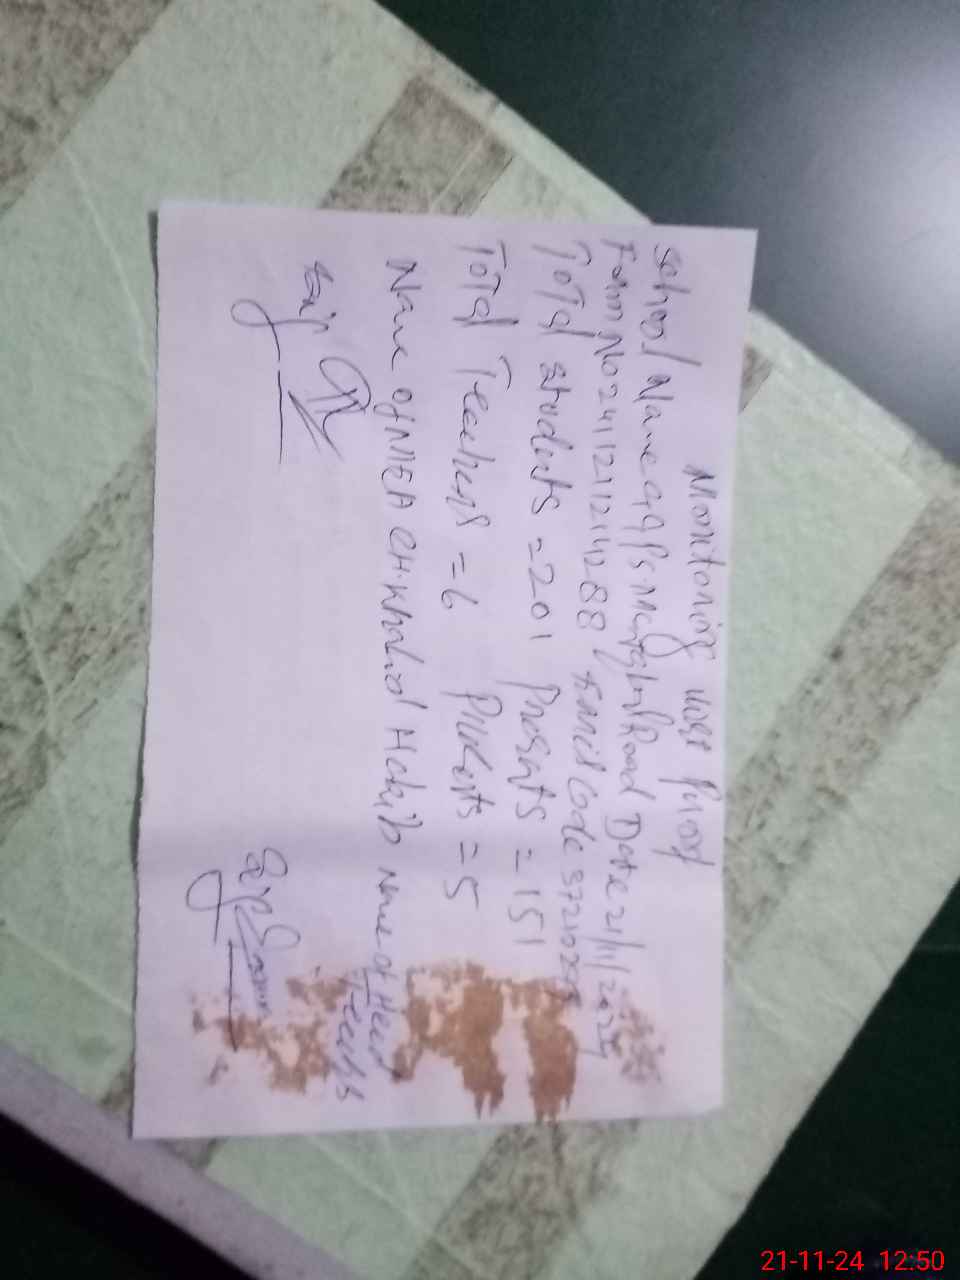 Monitoring
School Name GGPS Road Date 21/11/2024
Form No 24112112114288 Code
Total students = 201 Presents = 151
Total Teachers = 6 Presents = 5
Name of MEA CH. Khalid Habib Name of Head
Sig
Sig
21-11-24 12:50